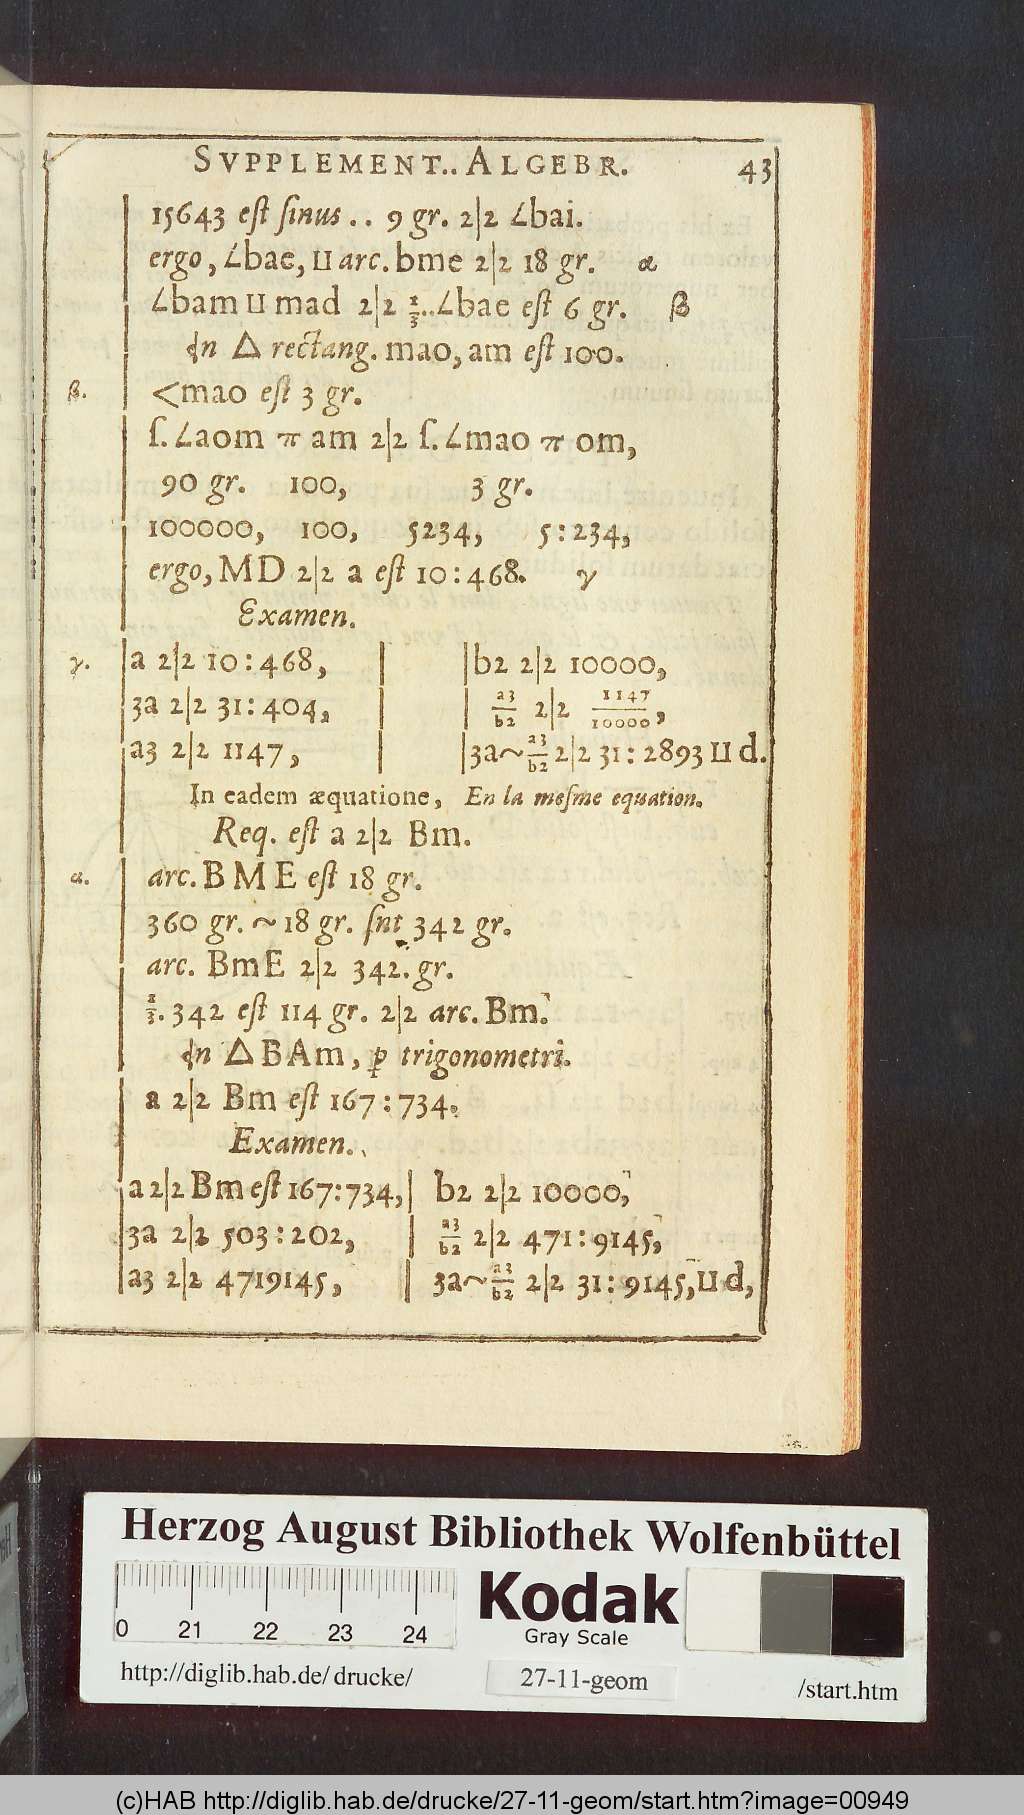 SVPPLEMENT.. ALGEBR. 43
15643 est sinus .. 9 gr. 2|2 ∠bai.
ergo, ∠bae, ⊔ arc. bme 2|2 18 gr. α
∠bam ⊔ mad 2|2 1/3..∠bae est 6 gr. β
In △ rectang. mao, am est 100.
β. <mao est 3 gr.
ſ. ∠aom π am 2|2 ſ. ∠mao π om,
90 gr. 100, 3 gr.
100000, 100, 5234, 5:234,
ergo, MD 2|2 a est 10:468. γ
Examen.
γ. |a 2|2 10:468, | |b2 2|2 10000,
|3a 2|2 31:404, | | a3/b2 2|2 1147/10000,
|a3 2|2 1147, | |3a~a3/b2 2|2 31:2893 ⊔ d.
In eadem æquatione, En la meſme equation.
Req. eſt a 2|2 Bm.
α. arc. BME eſt 18 gr.
360 gr. ~ 18 gr. ſnt 342 gr.
arc. BmE 2|2 342. gr.
1/3. 342 eſt 114 gr. 2|2 arc. Bm.
In △ BAm, p trigonometri.
a 2|2 Bm eſt 167:734.
Examen.
|a 2|2 Bm eſt 167:734,| b2 2|2 10000,
|3a 2|2 503:202, | a3/b2 2|2 471:9145,
|a3 2|2 4719145, | 3a~a3/b2 2|2 31:9145, ⊔ d,
Herzog August Bibliothek Wolfenbüttel
0 21 22 23 24
Kodak
Gray Scale
http://diglib.hab.de/drucke/ 27-11-geom /start.htm
(c)HAB http://diglib.hab.de/drucke/27-11-geom/start.htm?image=00949